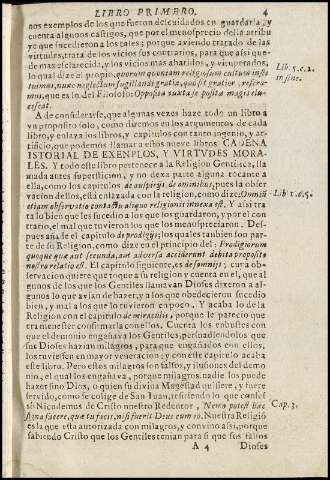 LIBRO PRIMERO. 4
nos exemplos de los que fueron descuidados en guardarla, y
cuenta algunos castigos, que por el menosprecio della atribu
ye que sucedieron a los tales; porque aviendo tratado de las
virtudes, trata de los vicios sus contrarios, para que assi que-
de mas esclarecida, y los vicios mas abatidos, y vituperados,
lo qual dize al propio, quorum quoniam religiosum cultum insti
tuimus, nunc neglectum sugillandi gratia, quod sit prætior, refera-
mus, que es lo del Filosofo: Opposita juxta se posita magis elu-
cescat.
A de considerarse, que algunas vezes haze todo un libro a
un proposito solo, como diremos en los argumentos de cada
libro, y enlaza los libros, y capitulos con tanto ingenio, y ar-
tificio, que podemos llamar a estos nueve libros CADENA
ISTORIAL DE EXENPLOS, Y VIRTVDES MORA-
LES. Y todo este libro pertenece a la Religion Gentilica, lla
mada antes supersticion, y no dexa parte alguna tocante a
ella, como los capitulos de auspicijs, de ominibus, pues la obser
vacion dellos, està enlazada con la religion, como dize: Omniũ
etiam observatio contactu aliquo religionis innexa est. Y assi tra
ta lo bien que les sucedio a los que guardaron, y por el con-
trario, el mal que tuvieron los que menospreciaron. Des-
pues añade el capitulo de prodigijs; los quales tambien son par
te de su Religion, como dize en el principio del: Prodigiorum
quoque quæ aut secunda, aut adversa acciderunt debita proposito
nostro relatio est. El capitulo siguiente, es de somnijs; cuya ob-
servacion quiere que toque a su religion y cuenta en el, que al
gunos de los que los Gentiles llamavan Dioses dixeron a al-
gunos lo que avian de hazer, y a los que obedecieron sucedio
bien, y mal a los que lo tuvieron en poco. Y acaba lo de la
Religion con el capitulo de miraculis, porque le parecio que
era menester confirmarla con ellos. Cuenta los embustes con
que el demonio engañava los Gentiles, persuadiendolos que
sus Dioses hazian milagros, para que engañados con ellos,
los tuviessen en mayor veneracion; y con este capitulo acaba
este libro. Pero ellos milagros son falsos, y ilusiones del demo
nio, el qual los engañava, porque milagros nadie los puede
hazer sino Dios, o quien su divina Magestad quisiere, y fuere
servido, como se colige de San Juan, refiriendo lo que confes-
sò Niculemus de Cristo nuestro Redentor, Nemo potest hæc
signa facere, quæ tu facis, nisi fuerit Deus cum eo. Nuestra Religiõ
es la que esta autorizada con milagros, y convino assi, porque
sabiendo Cristo que los Gentiles tenian para si que sus falsos
A 4 Dioses
Lib. 5. c. 2.
in fine.
Lib. 1. c. 5.
Cap. 3.